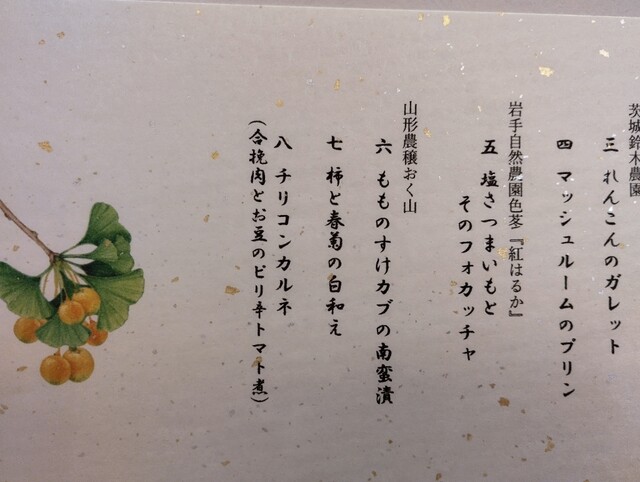 茨城鈴木農園
三 れんこんのガレット
四 マッシュルームのプリン
岩手自然農園色茎『紅はるか』
五 塩さつまいもと
そのフォカッチャ
山形農穣おく山
六 もものすけカブの南蛮漬
七 柿と春菊の白和え
八 チリコンカルネ
(合挽肉とお豆のピリ辛トマト煮)